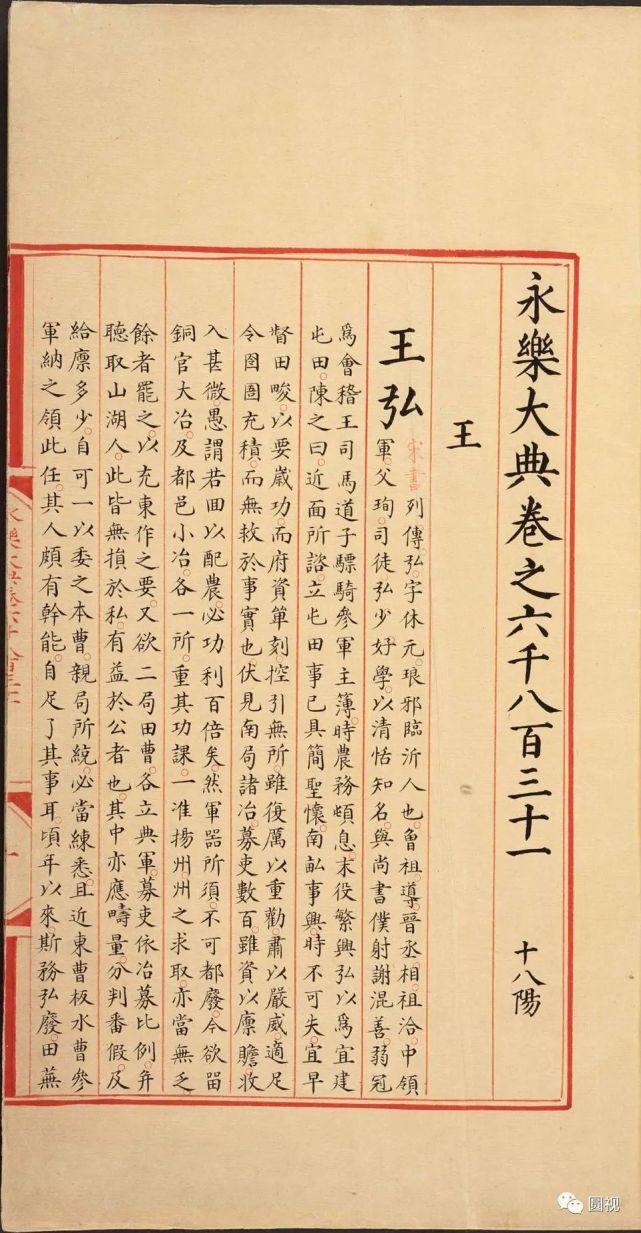 永樂大典卷之六千八百三十一　十八陽
王
王弘
宋書列傳。弘字休元。琅邪臨沂人也。曾祖導。晉丞相。祖洽。中領
軍。父珣。司徒。弘少好學。以清恬知名。與尚書僕射謝混善。弱冠
爲會稽王司馬道子驃騎參軍主簿。時農務頓息。末役繁興。弘以爲宜建
屯田。陳之曰。近面所諮。立屯田事。已具簡聖懷。南畝事興。時不可失。宜早
督田畯。以要嵗功。而府資單刻。控引無所。雖復厲以重勸。肅以嚴威。適足
令囹圄充積。而無救於事實也。伏見南局諸冶。募吏數百。雖資以廩贍。收
入甚微。愚謂若回以配農。必功利百倍矣。然軍器所須。不可都廢。今欲留
銅官大冶。及都邑小冶。各一所。重其功課。一准揚州。州之求取。亦當無乏
餘者罷之。以充東作之要。又欲二局田曹。各立典軍。募吏依冶募比例。并
聽取山湖人。此皆無損於私。有益於公者也。其中亦應疇量。分判番假。及
給廩多少。自可一以委之本曹。親局所統。必當練悉。且近東曹板水曹參
軍納之領此任。其人頗有幹能。自足了其事耳。頃年以來。斯務弘廢。田蕪
圆视